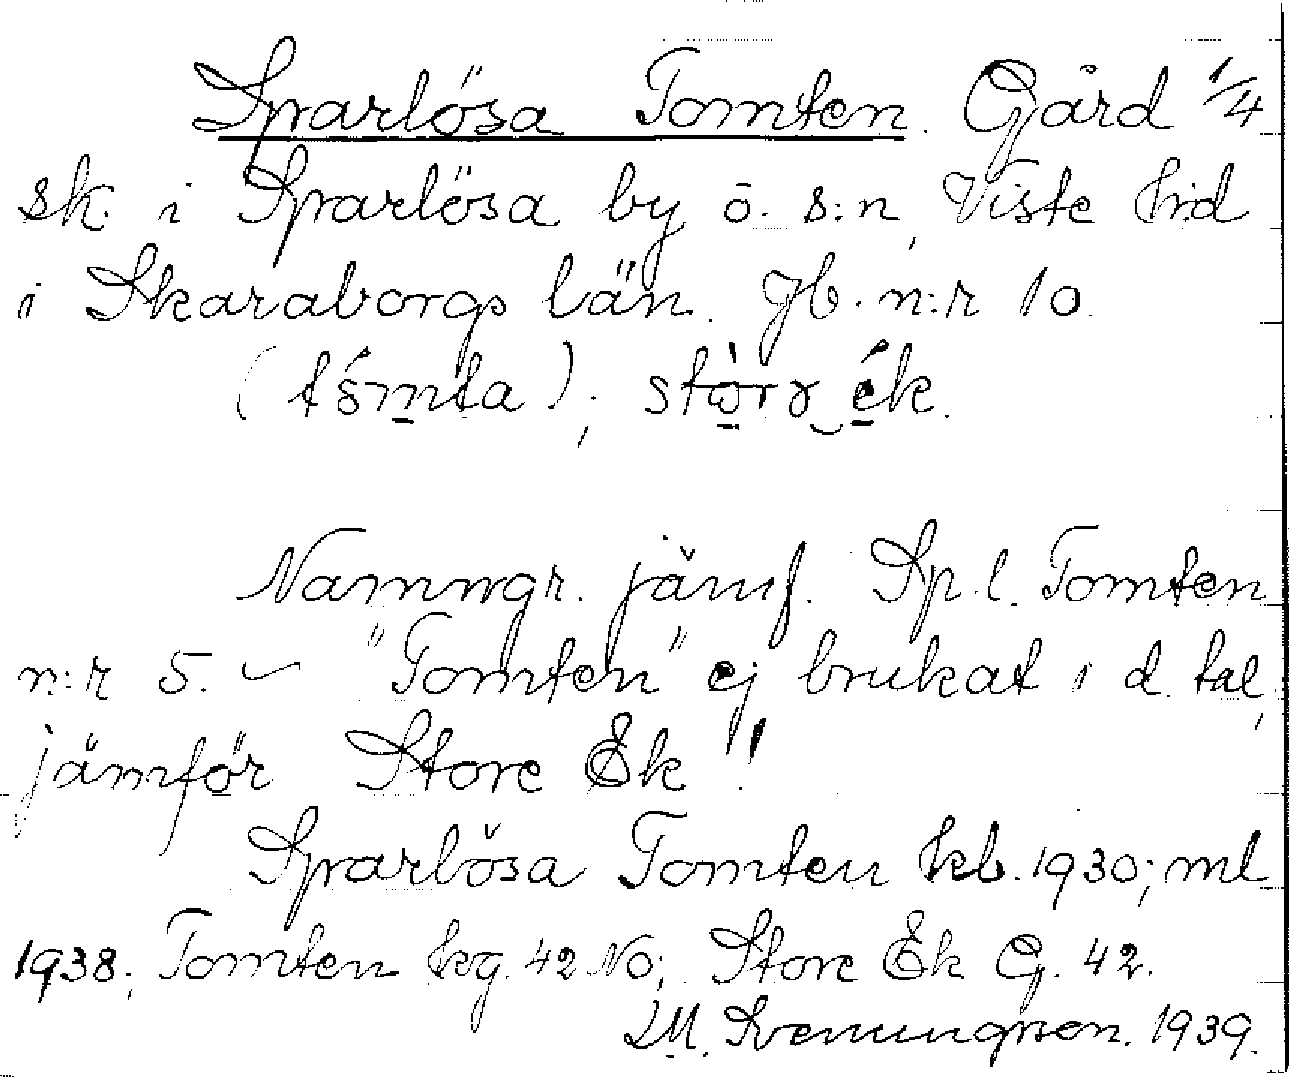 Sparlösa Tomten. Gård 1/4
sk. i Sparlösa by o. s:n, Viste hd
i Skaraborgs län. Jb. n:r 10.
(tómta); stòrɤ‿ék.
Namngr. jämf. Sp.l. Tomten
n:r 5. – "Tomten" ej brukat i d. tal,
jämför Store Ek!
Sparlösa Tomten kb. 1930; ml
1938; Tomten kg. 42 No; Store Ek G. 42.
M. Svenungsson. 1939.